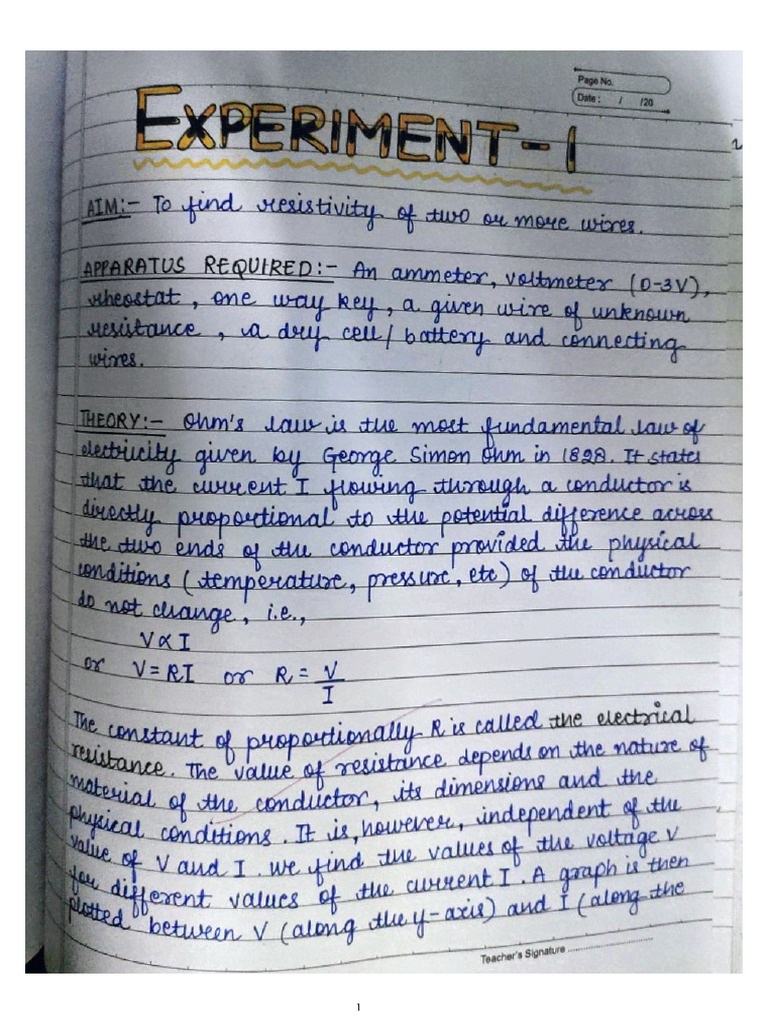 Page No.
Date : / /20
EXPERIMENT-1
2
AIM:- To find resistivity of two or more wires.
APPARATUS REQUIRED:- An ammeter, voltmeter (0-3V),
rheostat, one way key, a given wire of unknown
resistance, a dry cell/battery and connecting
wires.
THEORY:- Ohm's law is the most fundamental law of
electricity given by George Simon Ohm in 1828. It states
that the current I flowing through a conductor is
directly proportional to the potential difference across
the two ends of the conductor provided the physical
conditions (temperature, pressure, etc) of the conductor
do not change, i.e.,
V∝I
or V=RI or R = V/I
The constant of proportionally R is called the electrical
resistance. The value of resistance depends on the nature of
material of the conductor, its dimensions and the
physical conditions. It is, however, independent of the
value of V and I. we find the values of the voltage V
for different values of the current I. A graph is then
plotted between V (along the y-axis) and I (along the
Teacher's Signature ..............................
1